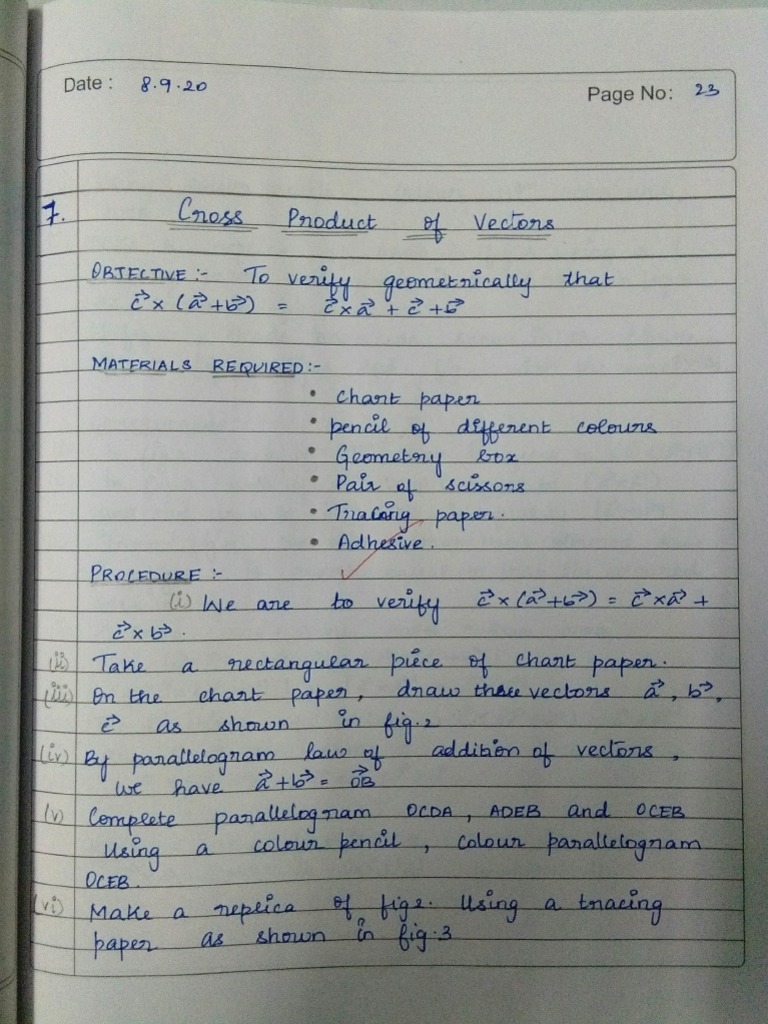 Date : 8.9.20
Page No: 23
7. Cross Product of Vectors
OBJECTIVE :- To verify geometrically that
c⃗ × (a⃗ + b⃗) = c⃗ × a⃗ + c⃗ + b⃗
MATERIALS REQUIRED :-
• Chart paper
• pencil of different colours
• Geometry box
• Pair of scissors
• Tracing paper.
• Adhesive.
PROCEDURE :-
(i) We are to verify c⃗ × (a⃗ + b⃗) = c⃗ × a⃗ +
c⃗ × b⃗.
(ii) Take a rectangular piece of chart paper.
(iii) On the chart paper, draw three vectors a⃗, b⃗,
c⃗ as shown in fig.2
(iv) By parallelogram law of addition of vectors,
we have a⃗ + b⃗ = OB⃗
(v) Complete parallelogram OCDA, ADEB and OCEB
Using a colour pencil, colour parallelogram
OCEB.
(vi) Make a replica of fig 2. Using a tracing
paper as shown in fig.3